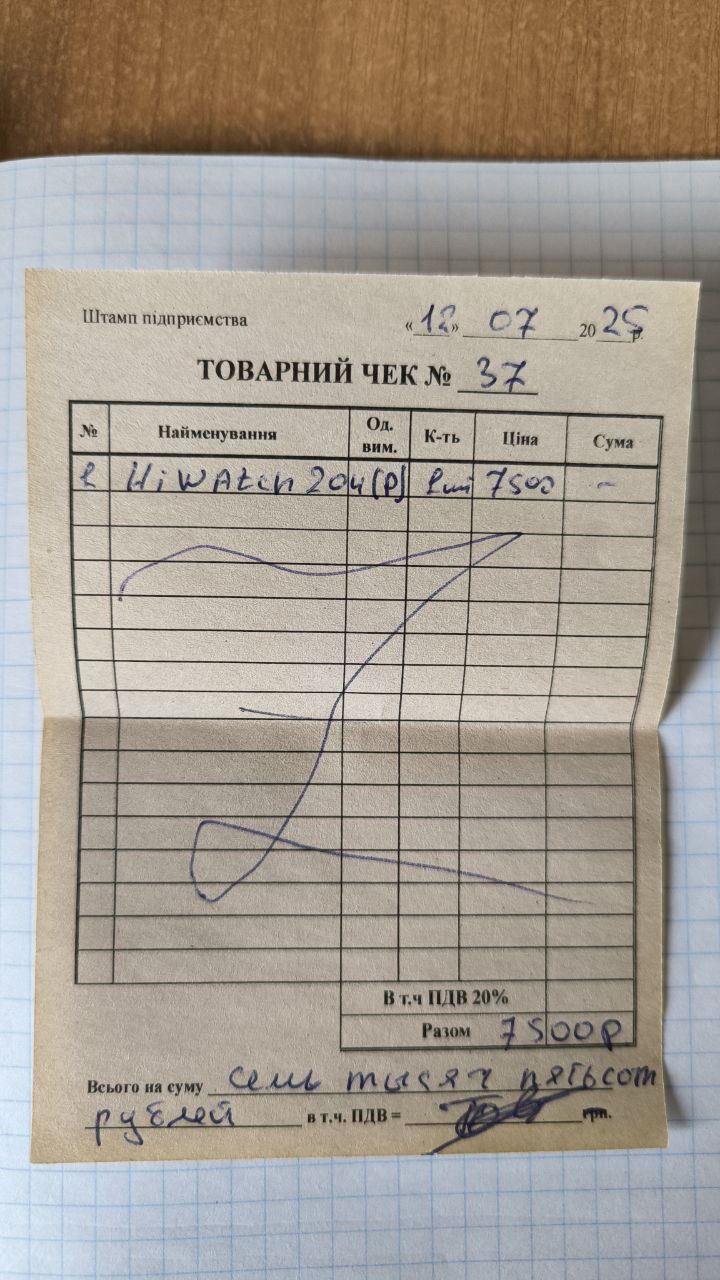 Штамп підприємства «12» 07 2025р.
ТОВАРНИЙ ЧЕК № 37
№ Найменування Од. вим. К-ть Ціна Сума
1 HiWAtch 204(P) 1шт 7500 -
В т.ч ПДВ 20%
Разом 7500р
Всього на суму семь тысяч пятьсот
рублей в т.ч. ПДВ = грн.